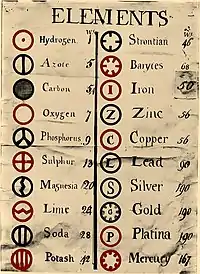 ELEMENTS
Hydrogen 1
Azote 5
Carbon 5
Oxygen 7
Phosphorus 9
Sulphur 13
Magnesia 20
Lime 24
Soda 28
Potash 42
Strontian 46
Barytes 68
I Iron 50
Z Zinc 56
C Copper 56
L Lead 90
S Silver 190
Gold 190
P Platina 190
Mercury 167